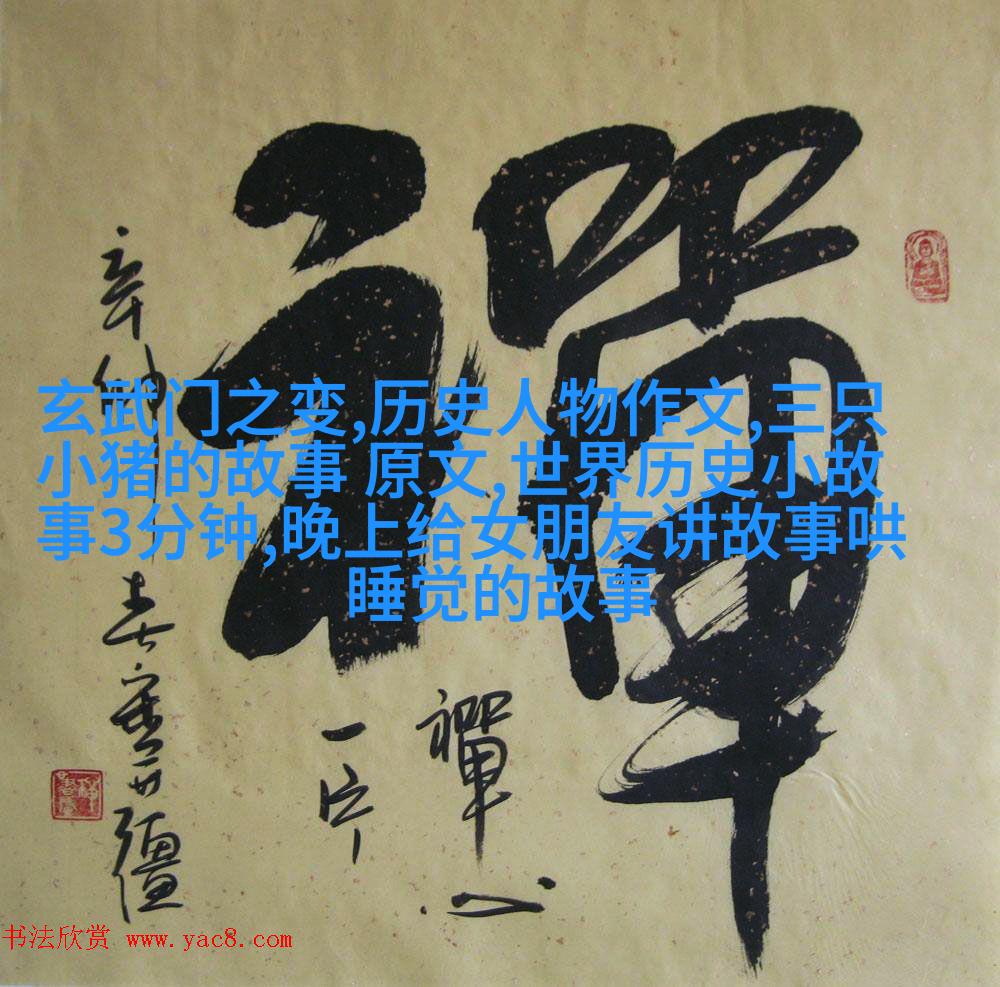 禪
禪心
一片
玄武门之变,历史人物作文,三只
小猪的故事 原文,世界历史小故
事3分钟,晚上给女朋友讲故事哄
睡觉的故事
书法欣赏 www.yac8.com